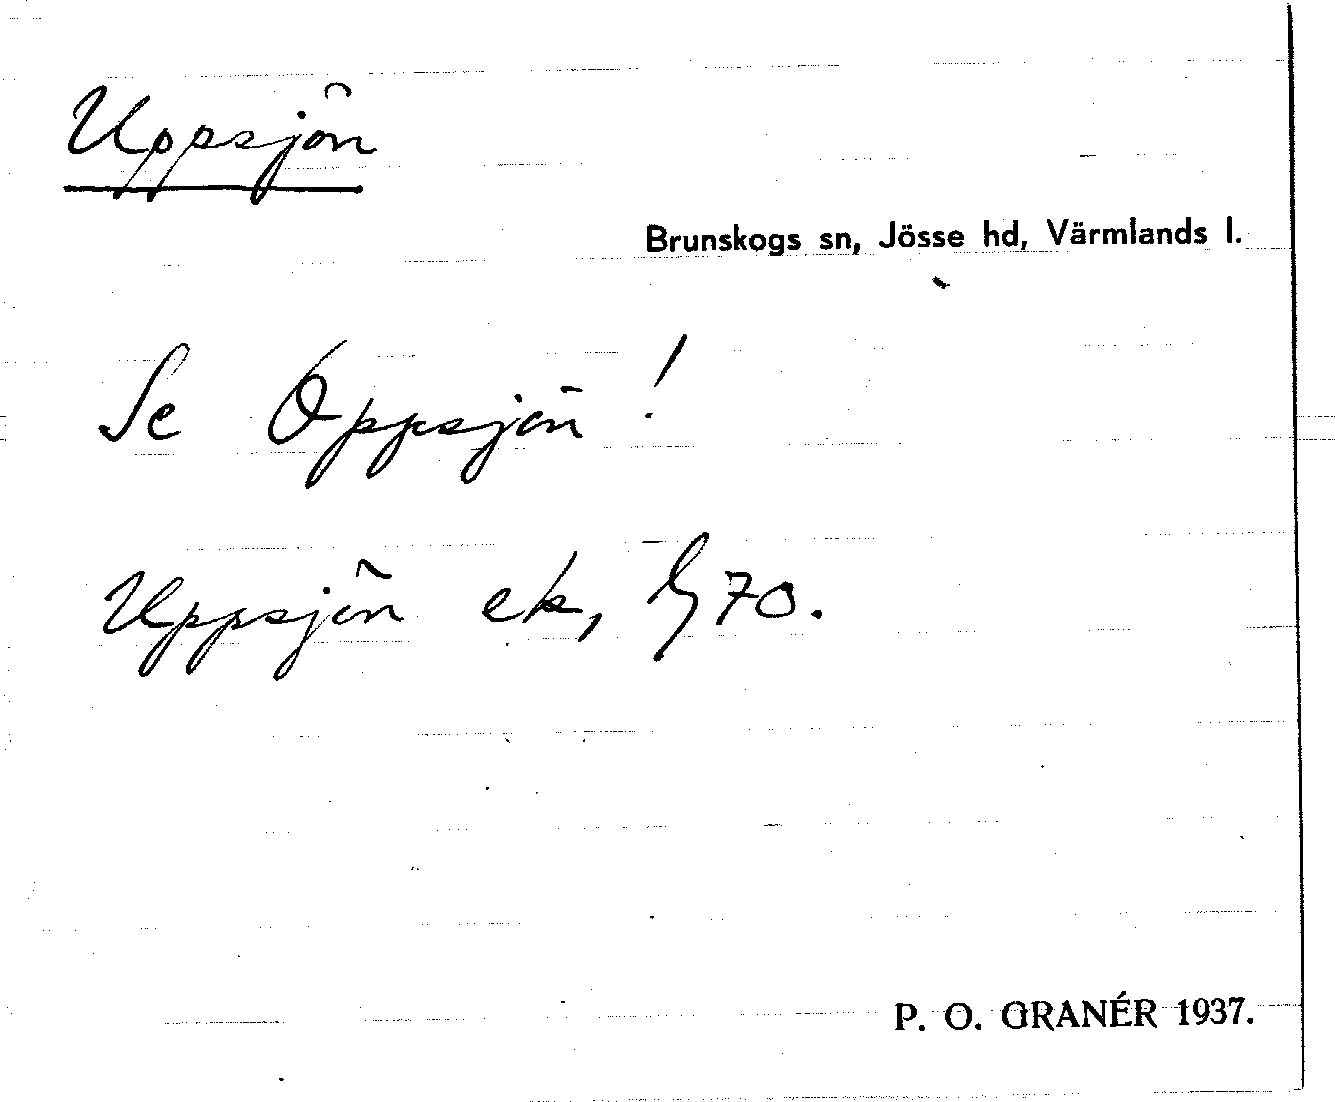 Uppsjön
Brunskogs sn, Jösse hd, Värmlands l.
Se Oppsjön!
Uppsjön ek, G70.
P. O. GRANÉR 1937.